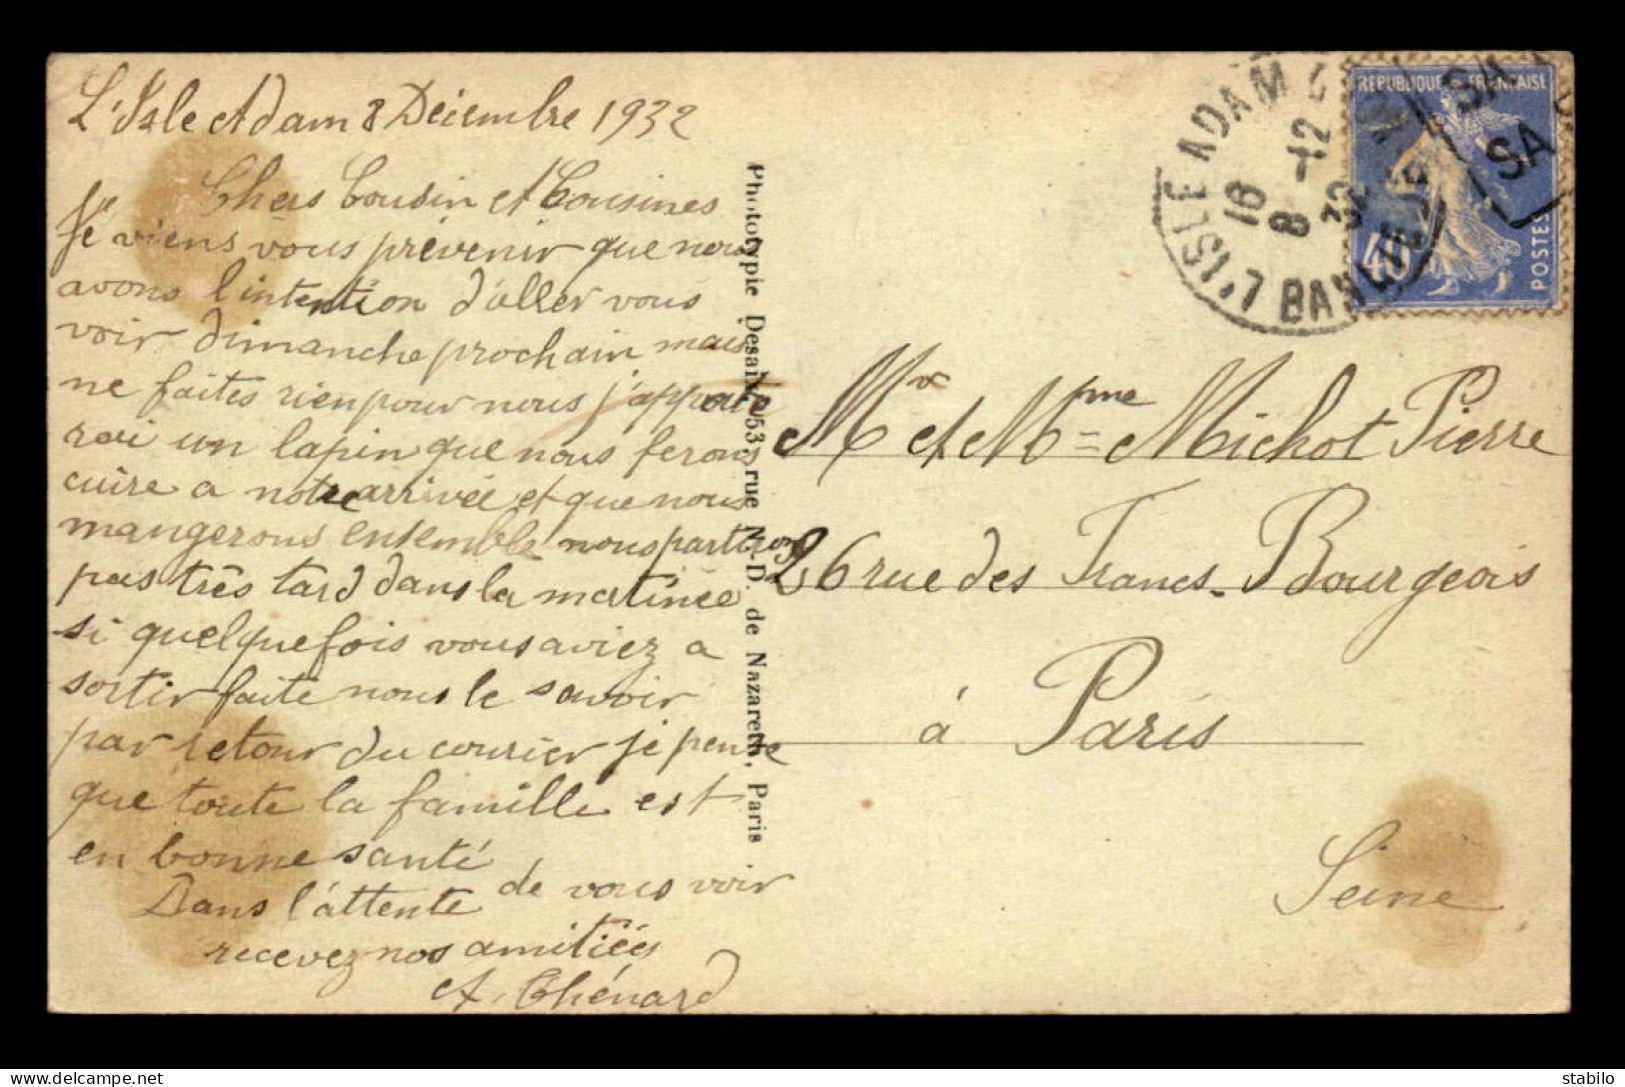 L'Isle Adam 8 Décembre 1932
Chers Cousin et Cousines
Je viens vous prévenir que nous
avons l'intention d'aller vous
voir dimanche prochain mais
ne faites rien pour nous j'apporte
rai un lapin que nous ferons
cuire a notre arrivée et que nous
mangerons ensemble nous partirons
pas très tard dans la matinée
si quelquefois vous aviez a
sortir faite nous le savoir
par retour du courier je pense
que toute la famille est
en bonne santé
Dans l'attente de vous voir
recevez nos amitiés
A. Chénard
Phototypie Desaix, 53, rue N.-D. de Nazareth, Paris
L'ISLE ADAM
18
8 -12
32
REPUBLIQUE FRANÇAISE
40
POSTES
SA
SA
Mr et Mme Michot Pierre
26 rue des Francs-Bourgeois
à Paris
Seine
stabilo